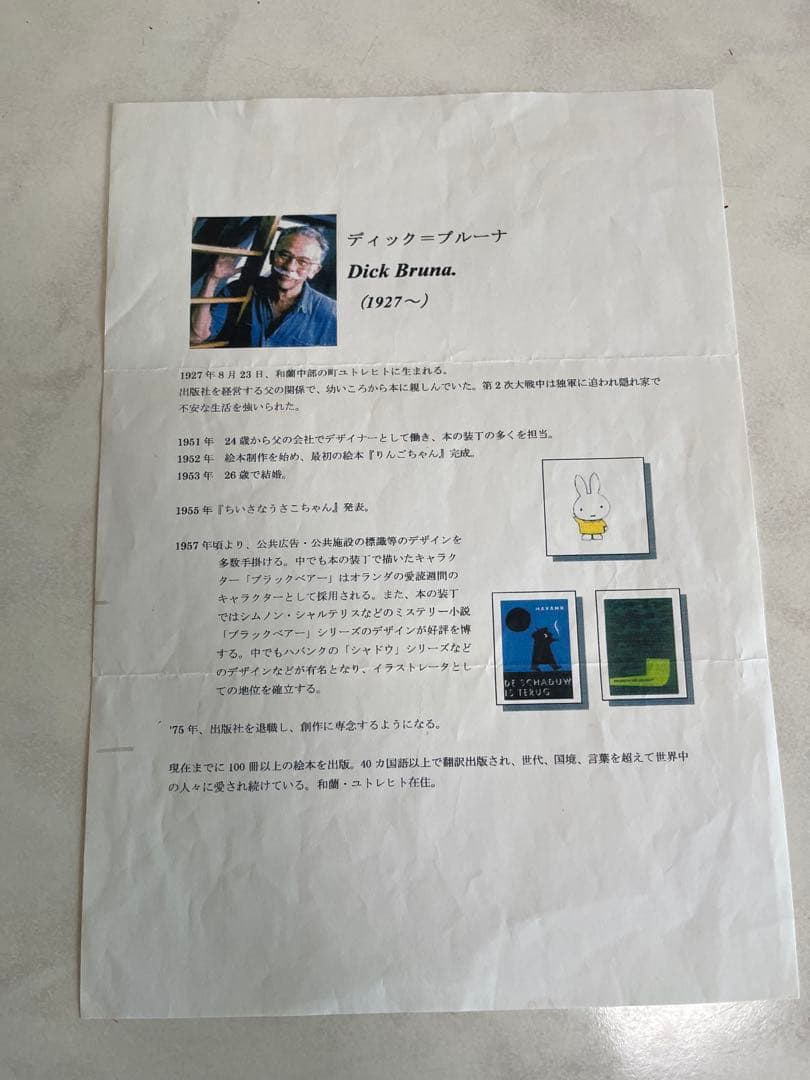 ディック＝ブルーナ
Dick Bruna.
（1927～）
1927年8月23日、和蘭中部の町ユトレヒトに生まれる。
出版社を経営する父の関係で、幼いころから本に親しんでいた。第2次大戦中は独軍に追われ隠れ家で
不安な生活を強いられた。
1951年　24歳から父の会社でデザイナーとして働き、本の装丁の多くを担当。
1952年　絵本制作を始め、最初の絵本『りんごちゃん』完成。
1953年　26歳で結婚。
1955年『ちいさなうさこちゃん』発表。
1957年頃より、公共広告・公共施設の標識等のデザインを
多数手掛ける。中でも本の装丁で描いたキャラク
ター「ブラックベアー」はオランダの愛読週間の
キャラクターとして採用される。また、本の装丁
ではシムノン・シャルテリスなどのミステリー小説
「ブラックベアー」シリーズのデザインが好評を博
する。中でもハバンクの「シャドウ」シリーズなど
のデザインなどが有名となり、イラストレータとし
ての地位を確立する。
HAVANK
DE SCHADUW
IS TERUG
'75年、出版社を退職し、創作に専念するようになる。
現在までに100冊以上の絵本を出版。40カ国語以上で翻訳出版され、世代、国境、言葉を超えて世界中
の人々に愛され続けている。和蘭・ユトレヒト在住。